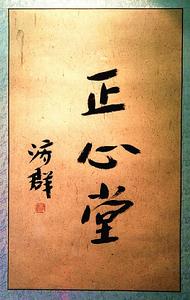 正心堂
济群